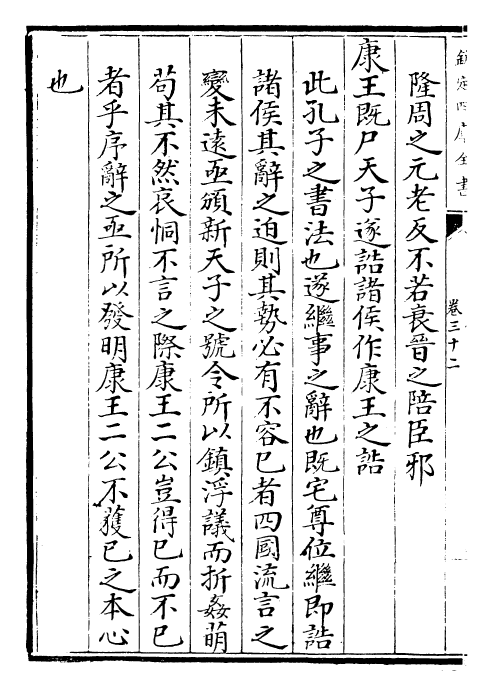 欽定四庫全書
卷三十二
隆周之元老反不若衰晉之陪臣邪
康王既尸天子遂誥諸侯作康王之誥
此孔子之書法也遂繼事之辭也既宅尊位繼即誥
諸侯其辭之迫則其勢必有不容已者四國流言之
變未遠亟頒新天子之號令所以鎮浮議而折姦萌
苟其不然哀恫不言之際康王二公豈得已而不已
者乎序辭之亟所以發明康王二公不獲已之本心
也